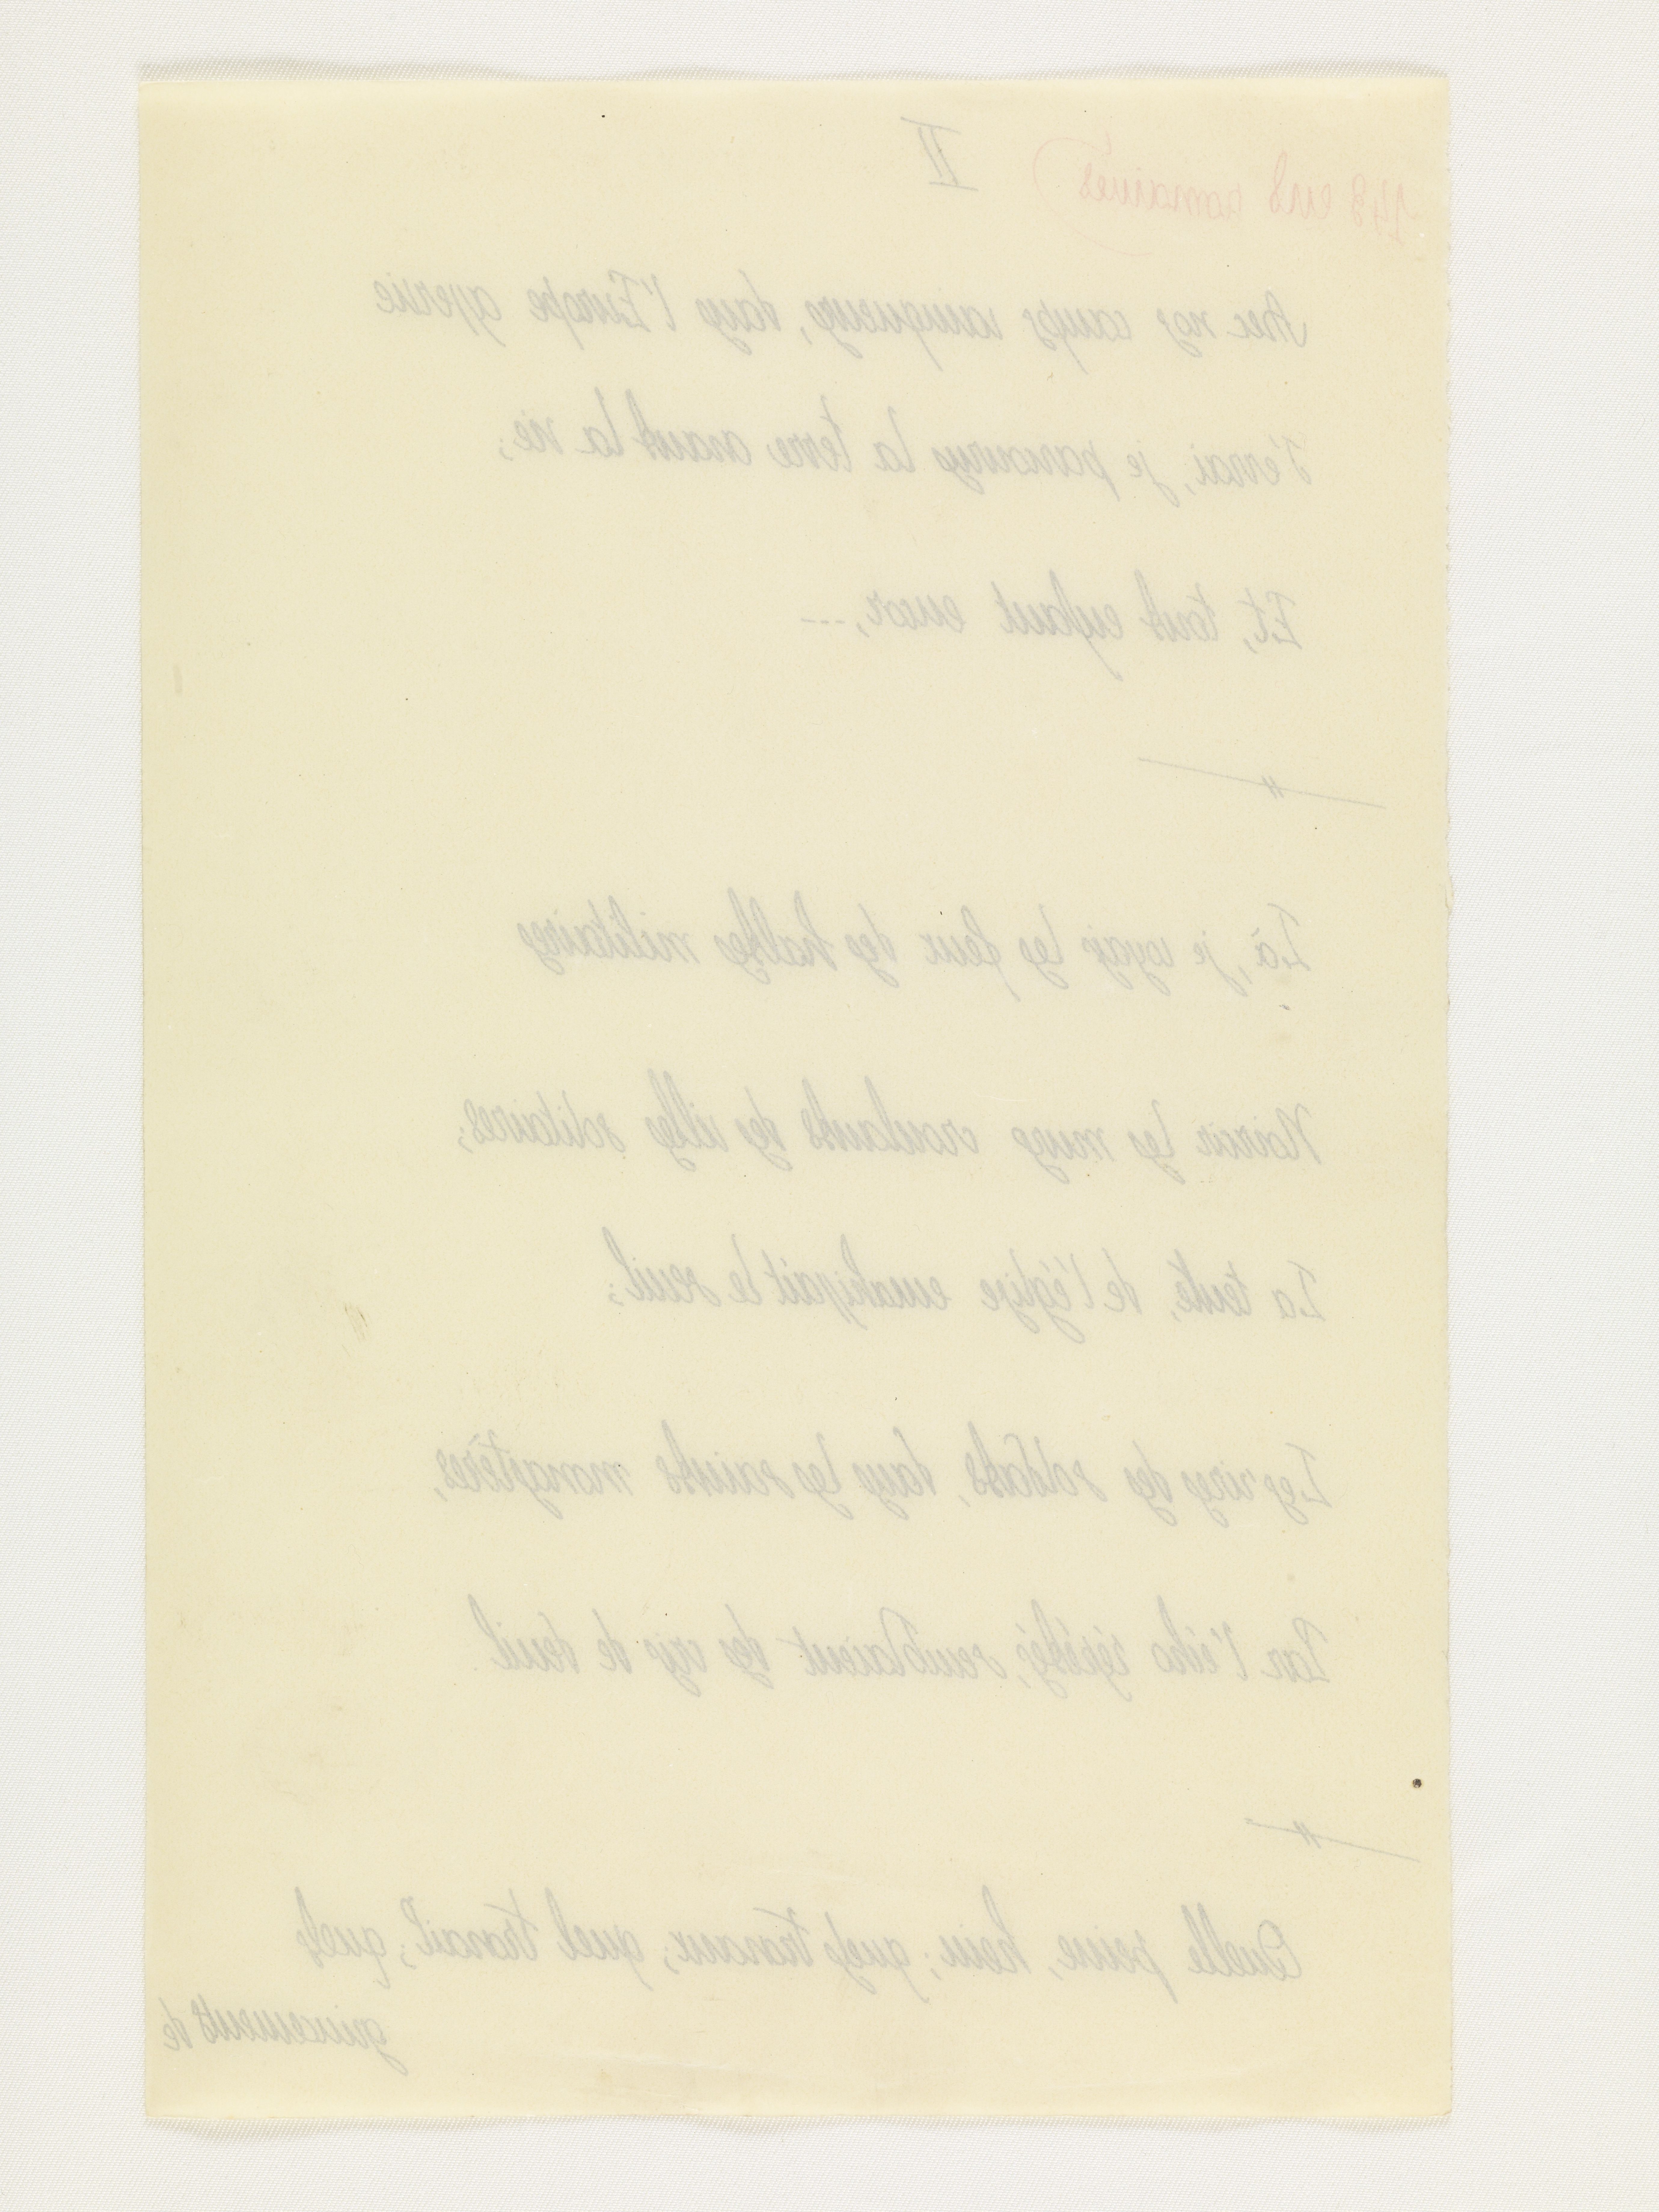 II
Avec nos camps vainqueurs, dans l'Europe asservie
J'errai, je parcourus la terre avant la vie;
Et, tout enfant encor, ...
Là, je voyais les feux des haltes militaires
Noircir les murs croulants des villes solitaires;
La tente, de l'église envahissait le seuil;
Les rires des soldats, dans les saints monastères,
Par l'écho répétés, semblaient des cris de deuil
Quelle peine, hein; quels travaux; quel travail; quels
grincements de